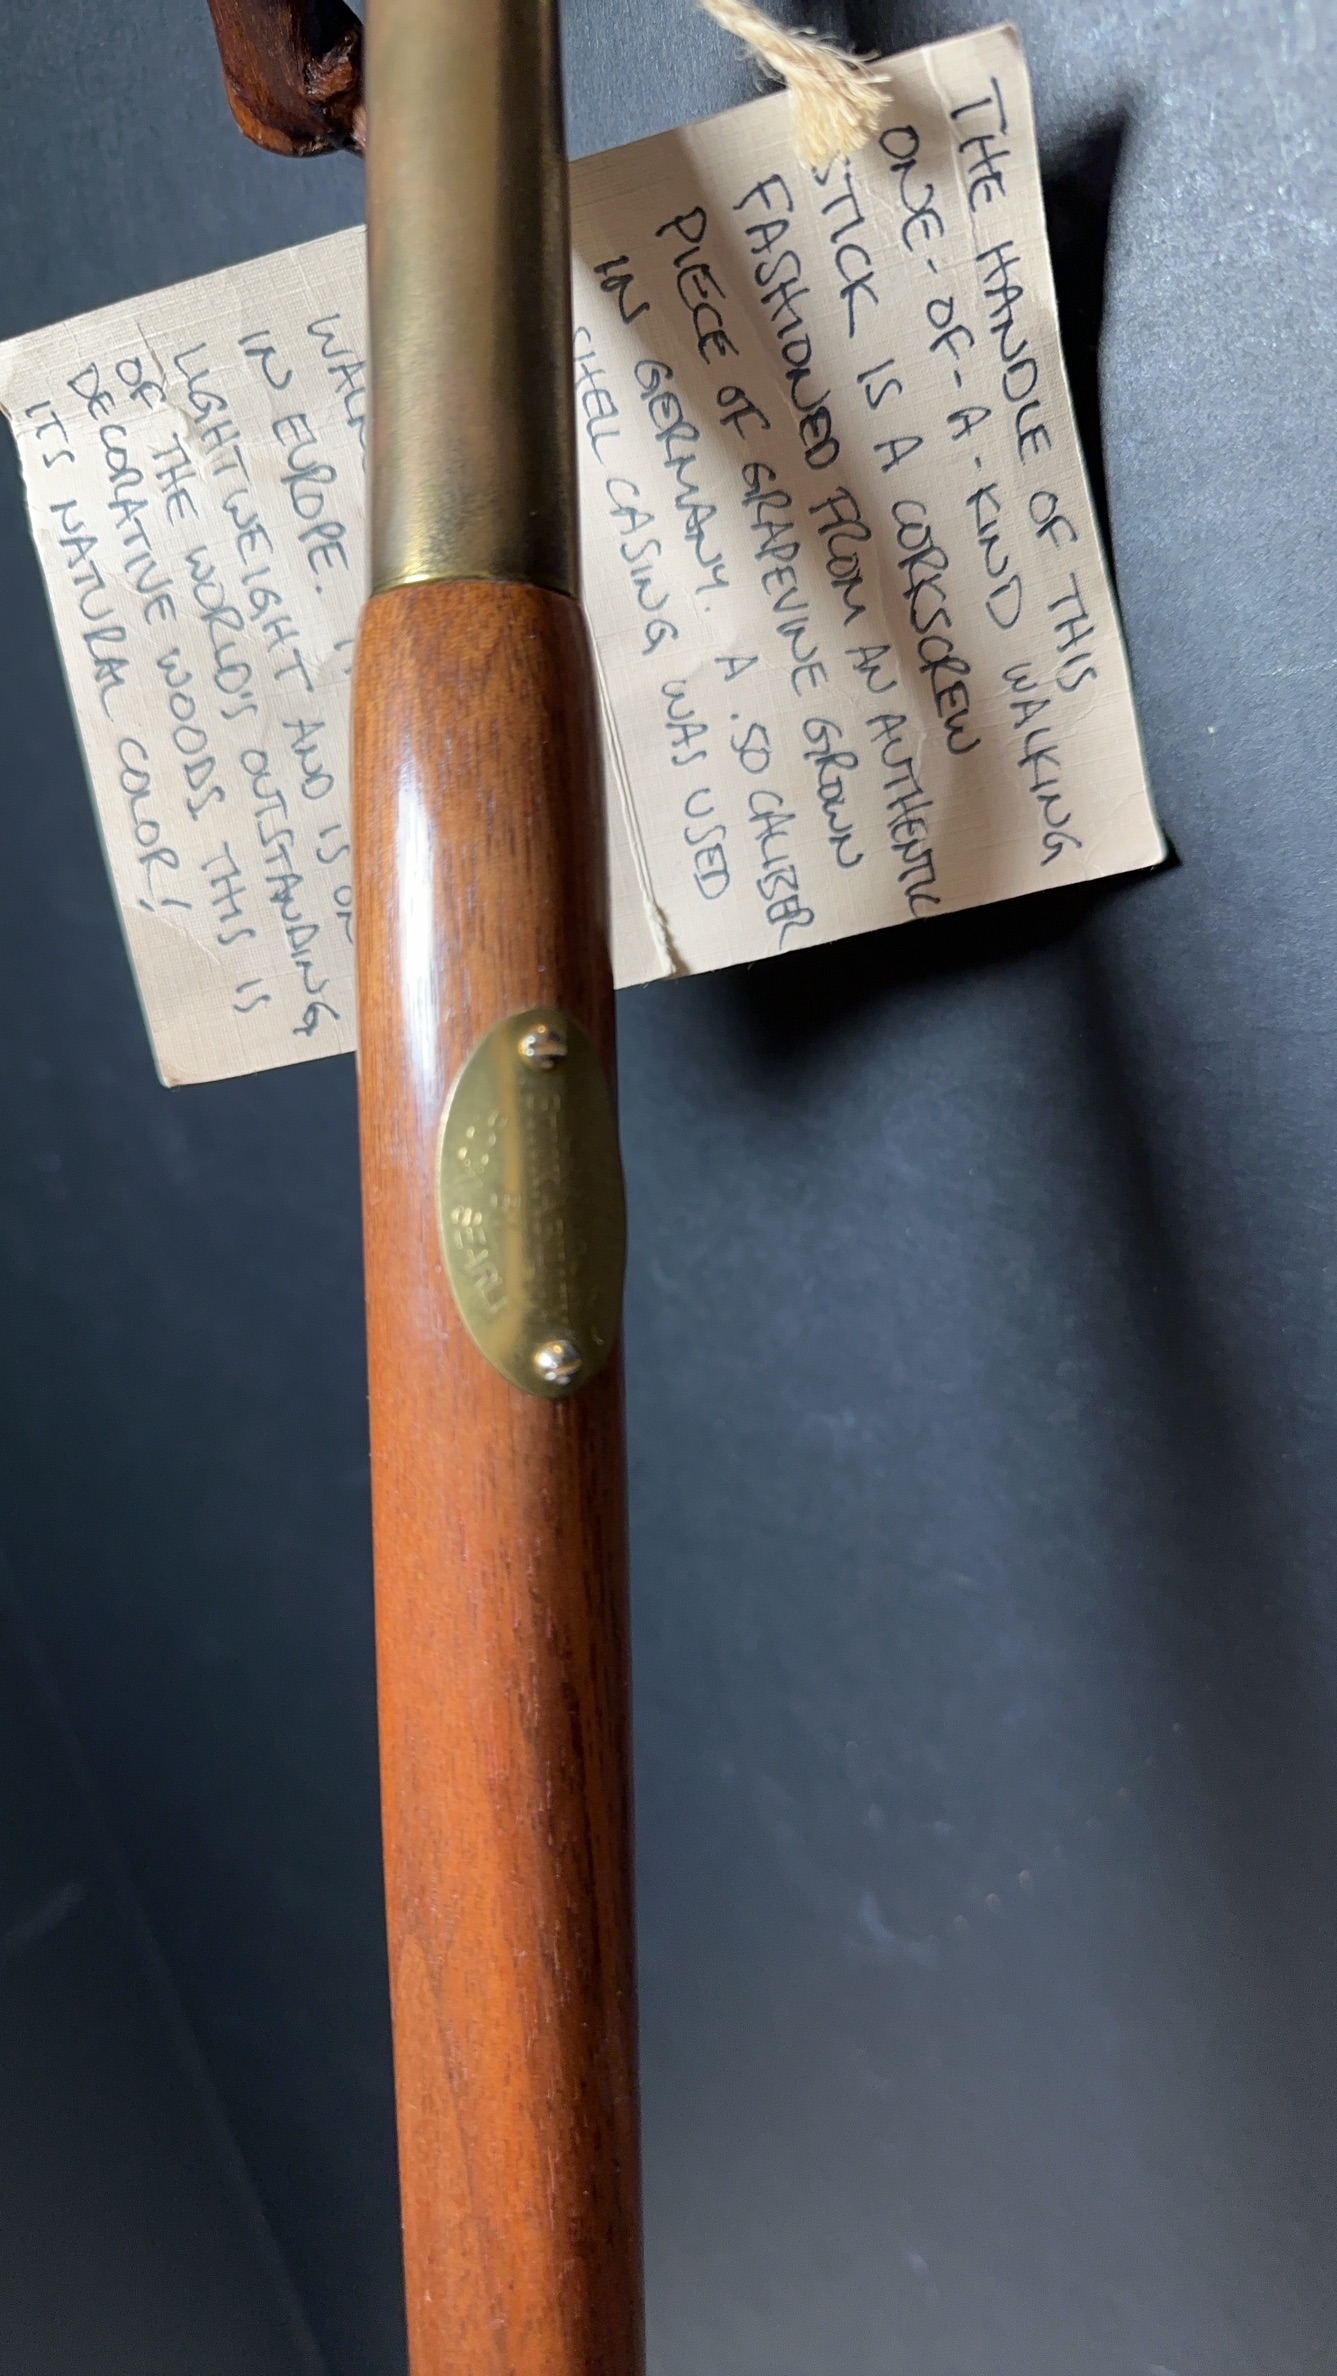 THE HANDLE OF THIS
ONE-OF-A-KIND WALKING
STICK IS A CORKSCREW
FASHIONED FROM AN AUTHENTIC
PIECE OF GRAPEVINE GROWN
IN GERMANY. A .50 CALIBER
SHELL CASING WAS USED
IN EUROPE.
LIGHTWEIGHT AND IS
OF THE WORLD'S OUTSTANDING
DECORATIVE WOODS. THIS IS
ITS NATURAL COLOR!
BY